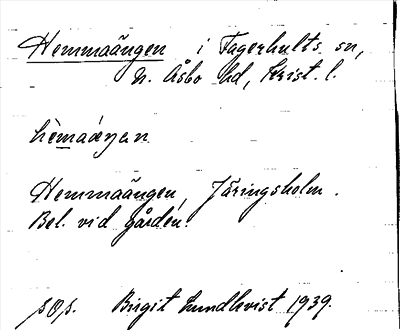 Hemmaängen i Fagerhults sn,
N. Åsbo hd, Krist. l.
hèmaáŋan
Hemmaängen, Järingsholm.
Bel. vid gården.
pOp. Birgit Lundkvist 1939.